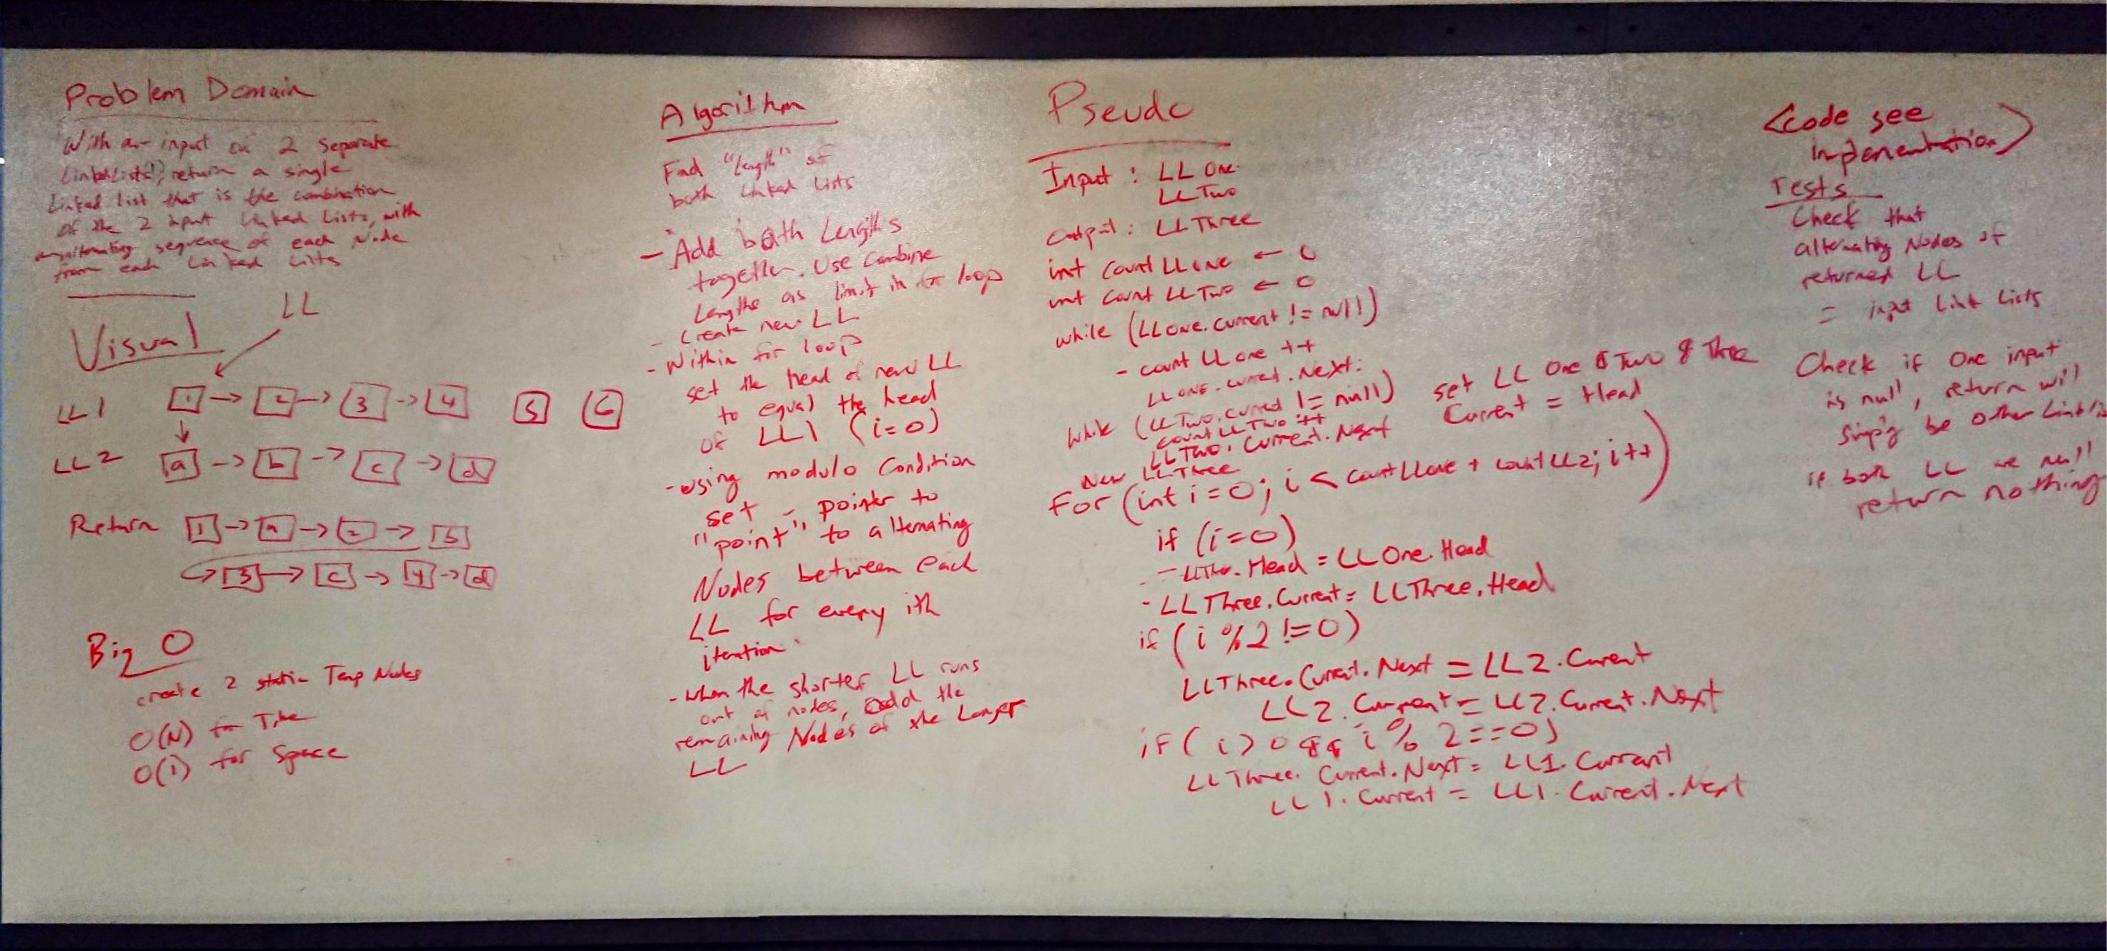 Problem Domain
With an input on 2 separate
LinkedLists, return a single
Linked list that is the combination
of the 2 input Linked Lists, with
an alternating sequence of each Node
from each Linked Lists
Visual
LL
LL1 1 → 2 → 3 → 4 5 6
LL2 a → b → c → d
Return 1 → a → 2 → b
→ 3 → c → 4 → d
Big O
create 2 static Temp Nodes
O(N) for Time
O(1) for Space
Algorithm
Find "length" of
both Linked Lists
- Add both Lengths
together. Use Combine
Lengths as limit in for loop
- Create new LL
- Within for loop
set the head of new LL
to equal the head
of LL1 (i=0)
- using modulo Condition
set - pointer to
"point" to alternating
Nodes between each
LL for every ith
iteration
- when the shorter LL runs
out of nodes, add the
remaining Nodes of the Longer
LL
Pseudo
Input : LL One
LL Two
output : LL Three
int Count LL one ← 0
int Count LL Two ← 0
while (LL one. current != null)
- count LL one ++
LL one. current. Next.
while (LL Two. current != null)
count LL Two ++
LL Two. Current. Next
New LL Three
set LL One & Two & Three
Current = Head
For (int i=0; i < count LL one + count LL2; i++)
if (i=0)
- LL Three. Head = LL One. Head
- LL Three. Current = LL Three. Head
if (i %2 !=0)
LL Three. Current. Next = LL2. Current
LL2. Current = LL2. Current. Next
if (i>0 && i % 2==0)
LL Three. Current. Next = LL1. Current
LL1. Current = LL1. Current. Next
<Code see
implementation>
Tests
Check that
alternating Nodes of
returned LL
= input Link Lists
Check if one input
is null, return will
simply be other
if both LL are null
return nothing